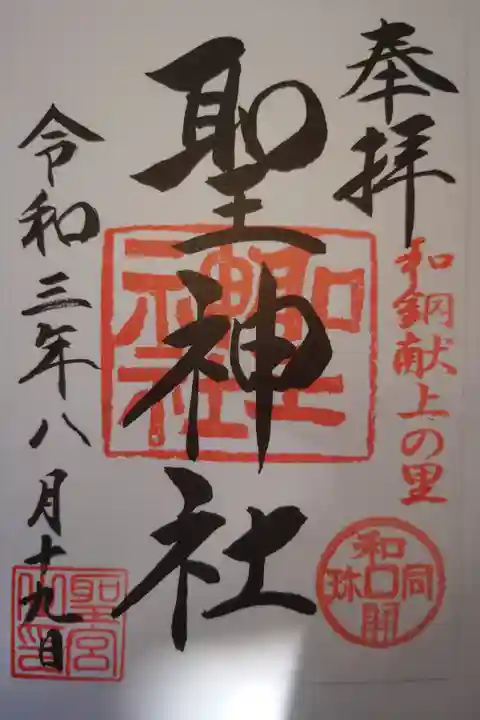 奉拝
和銅献上の里
和同開珎
聖神社
聖神社
令和三年八月十九日
聖宮